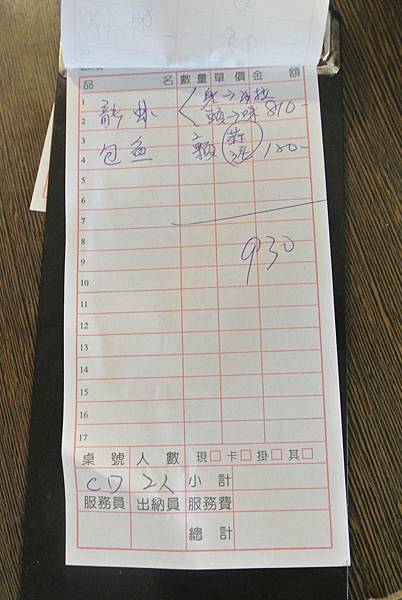 品 名 數量 單價 金 額
1 身→沙拉
2 龍虾 頭→味 810-
3
4 包鱼 2顆 蒜泥 120-
5
6
7
8 930
9
10
11
12
13
14
15
16
17
桌 號 人 數 現□ 卡□ 掛□ 其□
C7 2人 小 計
服務員 出納員 服務費
總 計